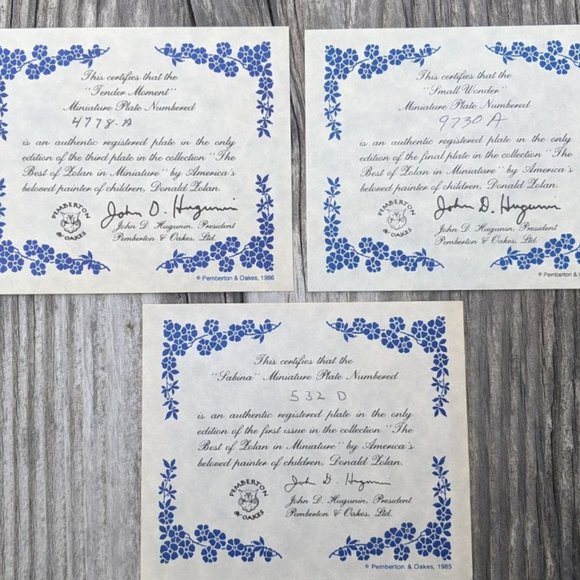 This certifies that the
"Tender Moment"
Miniature Plate Numbered
4778-A
is an authentic registered plate in the only
edition of the third plate in the collection "The
Best of Zolan in Miniature" by America's
beloved painter of children, Donald Zolan.
PEMBERTON
& OAKES
John D. Hugunin
John D. Hugunin, President
Pemberton & Oakes, Ltd.
© Pemberton & Oakes, 1986
This certifies that the
"Small Wonder"
Miniature Plate Numbered
9730 A
is an authentic registered plate in the only
edition of the final plate in the collection "The
Best of Zolan in Miniature" by America's
beloved painter of children, Donald Zolan.
PEMBERTON
& OAKES
John D. Hugunin
John D. Hugunin, President
Pemberton & Oakes, Ltd.
© Pemberton & Oakes,
This certifies that the
"Sabina" Miniature Plate Numbered
532 D
is an authentic registered plate in the only
edition of the first issue in the collection "The
Best of Zolan in Miniature" by America's
beloved painter of children, Donald Zolan.
PEMBERTON
& OAKES
John D. Hugunin
John D. Hugunin, President
Pemberton & Oakes, Ltd.
© Pemberton & Oakes, 1985